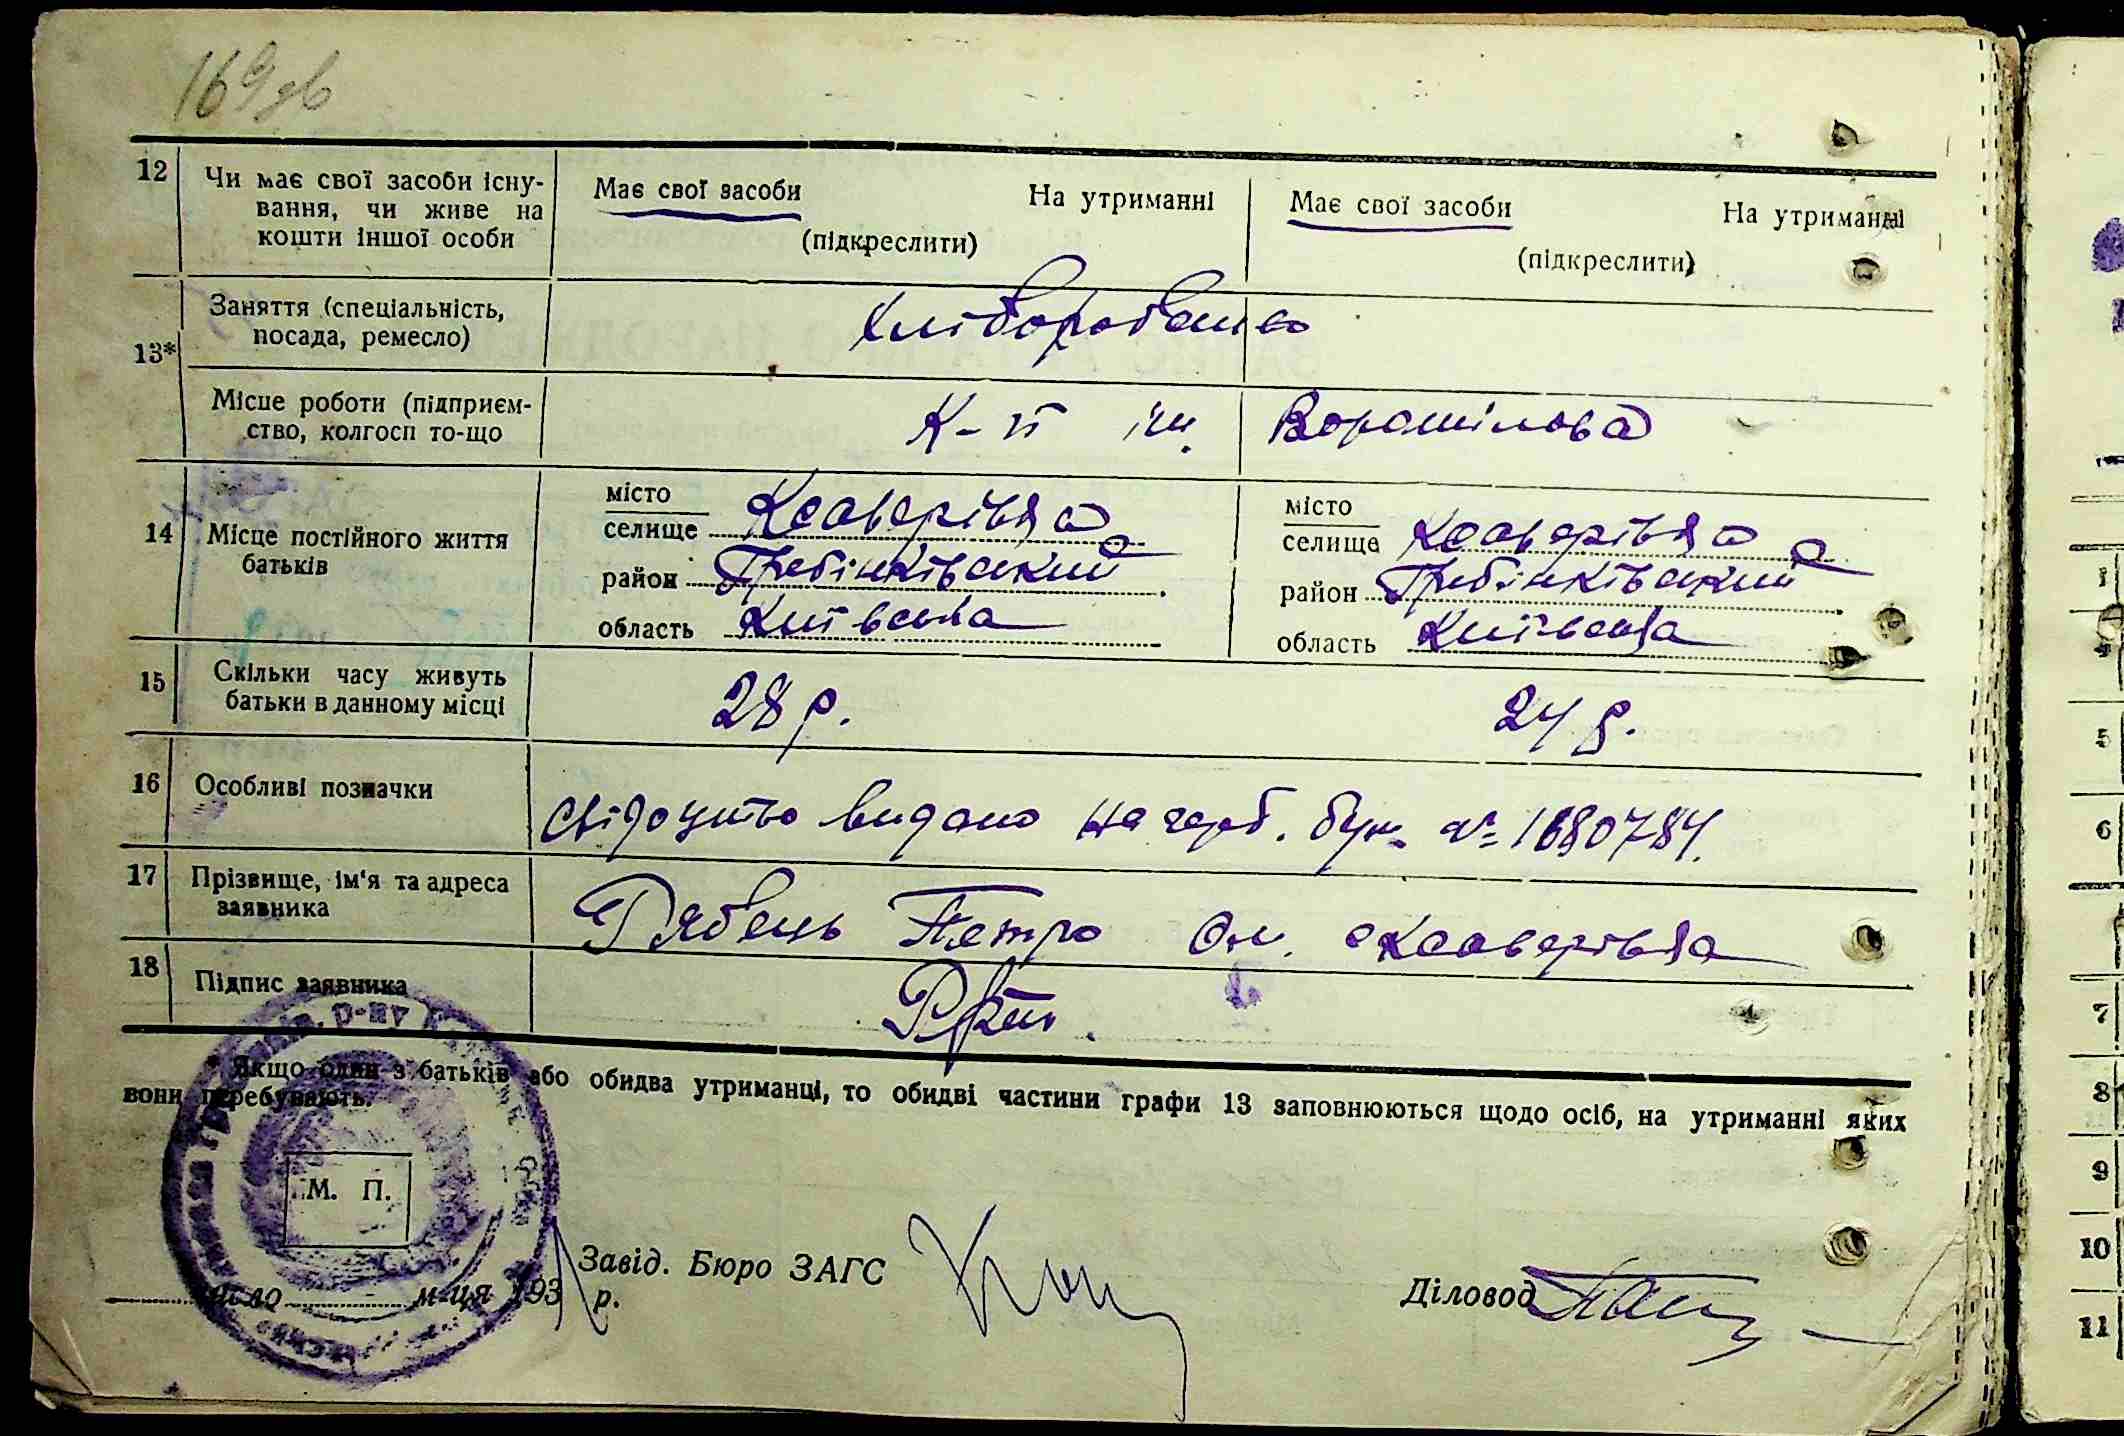 169 зв
12 Чи має свої засоби існу-
вання, чи живе на
кошти іншої особи
Має свої засоби На утриманні
(підкреслити)
Має свої засоби На утриманні
(підкреслити)
13*
Заняття (спеціальність,
посада, ремесло)
Місце роботи (підприєм-
ство, колгосп то-що
К-п ім. Ворошілова
14 Місце постійного життя
батьків
місто
селище Ксаверівка
район Гребінківський
область Київська
місто
селище Ксаверівка
район Гребінківський
область Київська
15 Скільки часу живуть
батьки в данному місці
28 р. 24 р.
16 Особливі позначки
свідоцтво видано на герб. бум. № 1680784.
17 Прізвище, ім'я та адреса
заявника
Рябець Петро Ом. с Ксаверівка
18 Підпис заявника
* Якщо один з батьків або обидва утриманці, то обидві частини графи 13 заповнюються щодо осіб, на утриманні яких
вони перебувають.
М. П.
Завід. Бюро ЗАГС
Діловод
число м-ця 193 р.
5
6
7
8
9
10
11